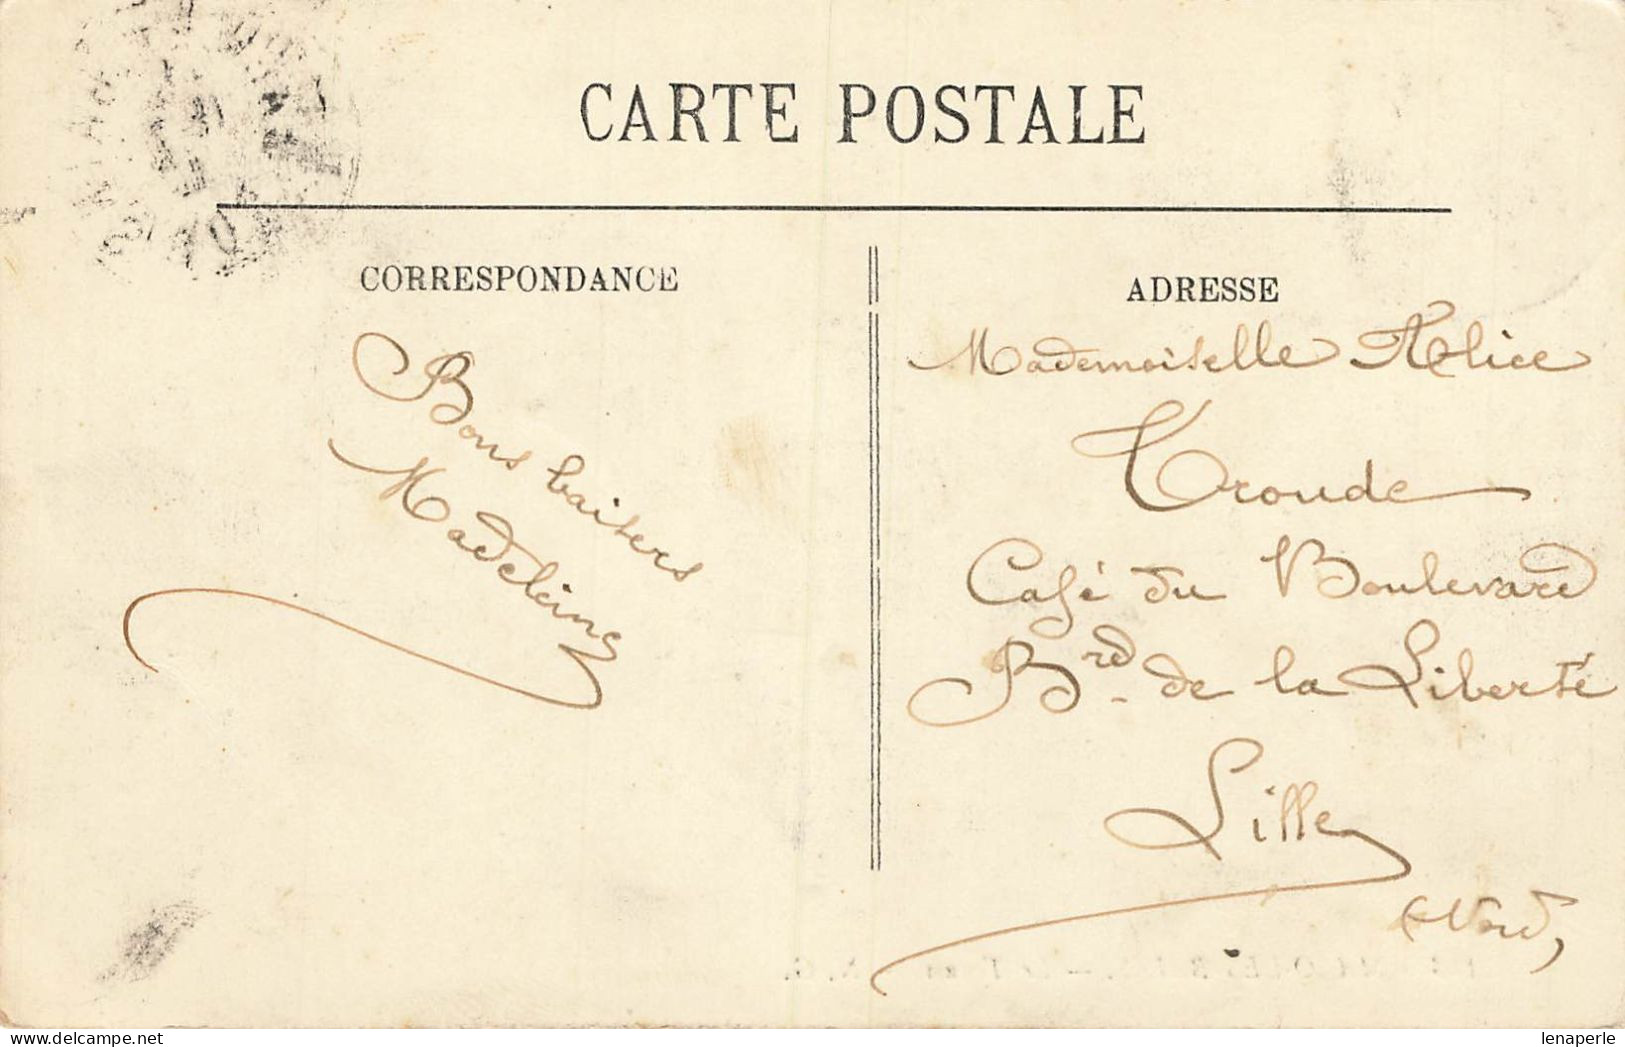 CARTE POSTALE
CORRESPONDANCE
Bons baisers
Madeleine
ADRESSE
Mademoiselle Alice
Troude
Café du Boulevard
Brd de la Liberté
Lille
(Nord)
lenaperle